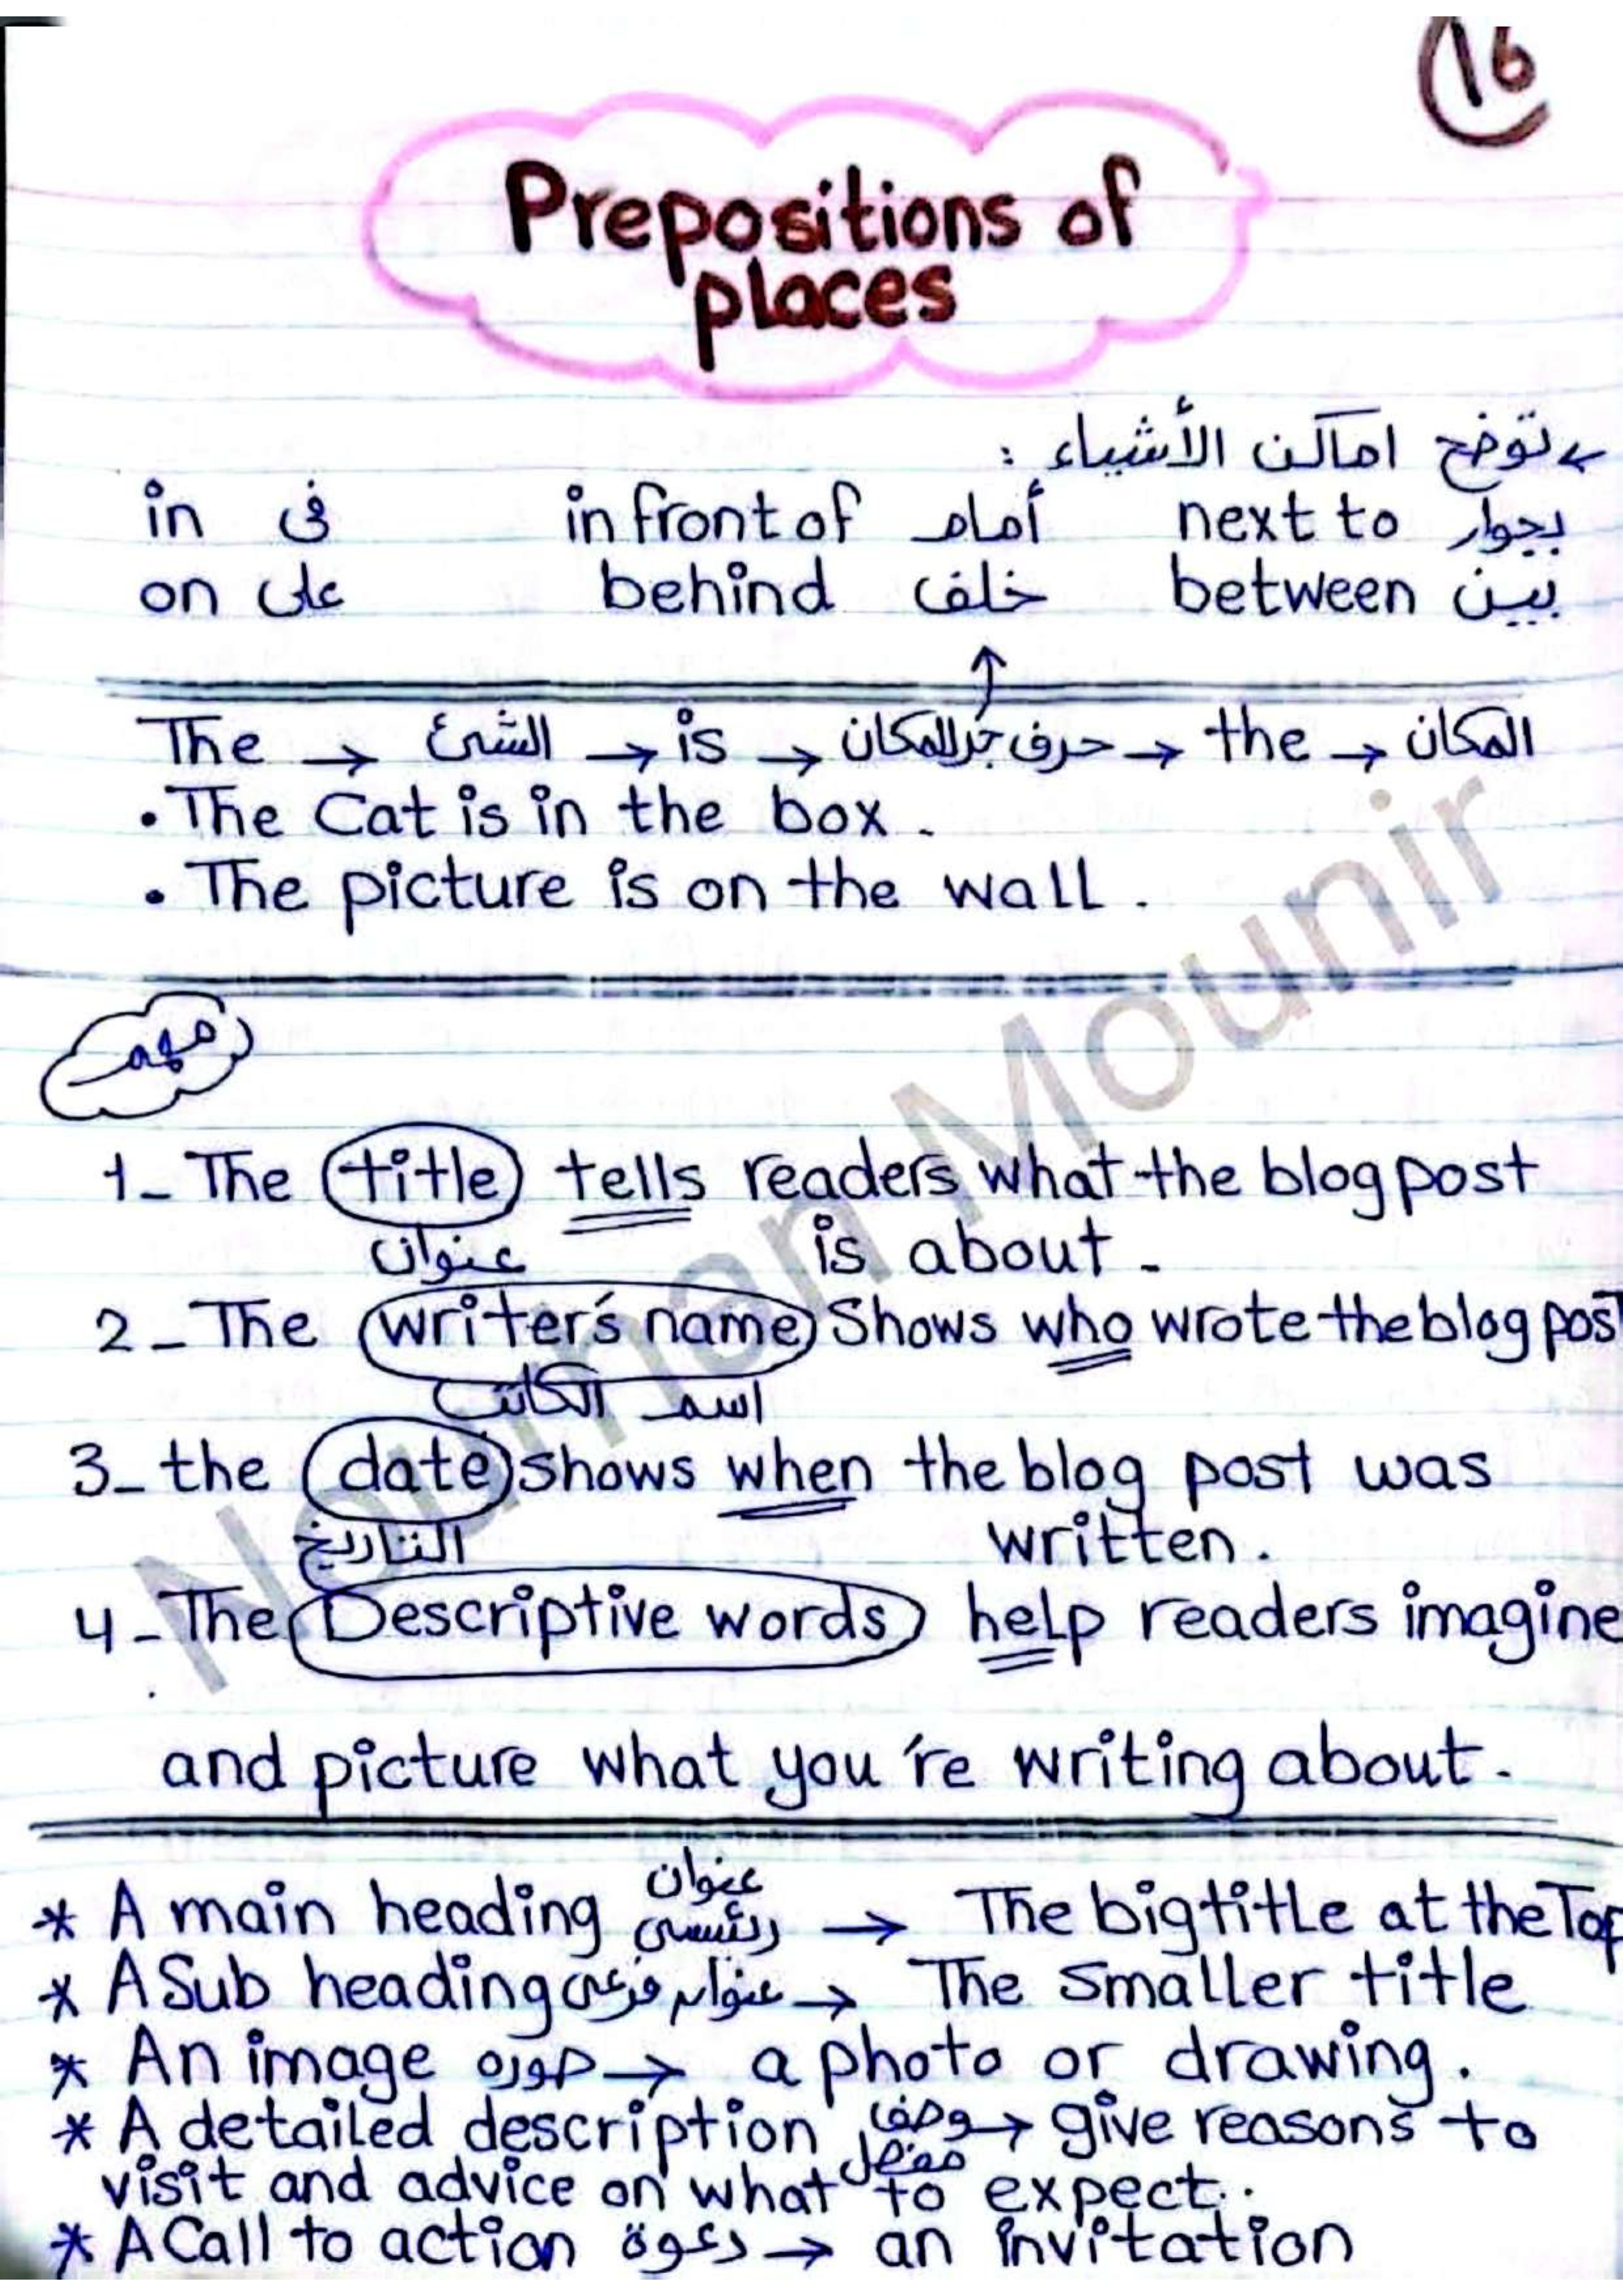 16
Prepositions of
places
توضح اماكن الأشياء :
in فى in front of أمام next to بجوار
on على behind خلف between بين
The → الشئ → is → حرف جر للمكان → the → المكان
• The Cat is in the box.
• The picture is on the wall.
مهم
1- The title tells readers what the blog post
عنوان is about.
2- The writer's name Shows who wrote the blog post
اسم الكاتب
3- the date shows when the blog post was
التاريخ written.
4- The Descriptive words help readers imagine
and picture what you're writing about.
* A main heading عنوان رئيسى → The big title at the Top
* A Sub heading عنوان فرعى → The smaller title
* An image صوره → a photo or drawing.
* A detailed description وصف مفصل → give reasons to
visit and advice on what to expect.
* A Call to action دعوة → an invitation
Nourhan Mounir